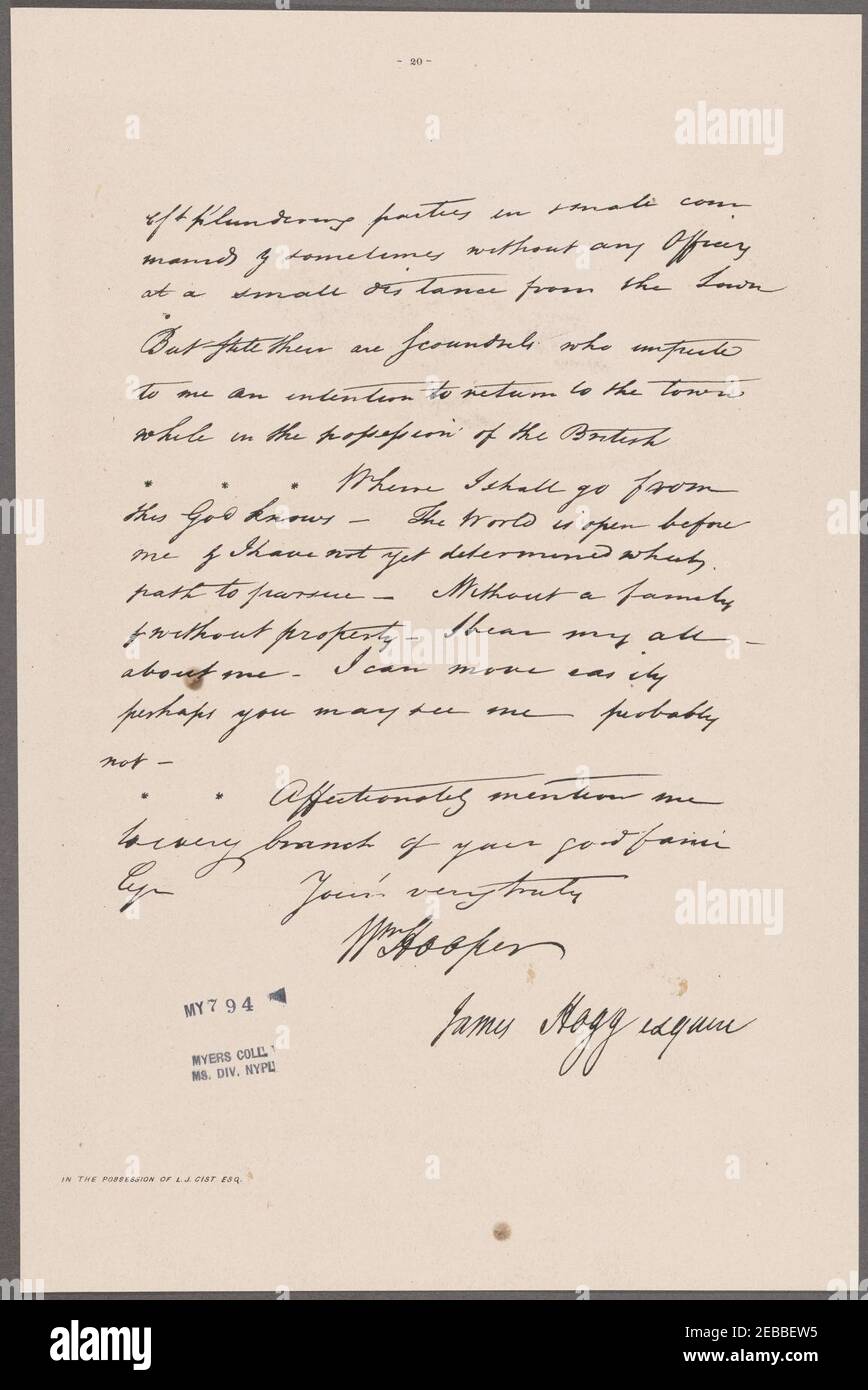 - 20 -
of & plundering parties in small com
mands & sometimes without any Officer
at a small distance from the Town
But still there are Scoundrels who impute
to me an intention to return to the town
while in the possession of the British
* * * Where I shall go from
this God knows — The World is open before
me & I have not yet determined which
path to pursue — Without a family
& without property — I bear my all —
about me — I can move easily
perhaps you may see me — probably
not —
* * Affectionately mention me
to every branch of your good fami
Yours very truly
Wm Hooper
James Hogg esquire
MY 794
MYERS COLL.
MS. DIV. NYPL
IN THE POSSESSION OF L.J. CIST ESQ.
alamy
alamy
alamy
Image ID: 2EBBEW5
www.alamy.com